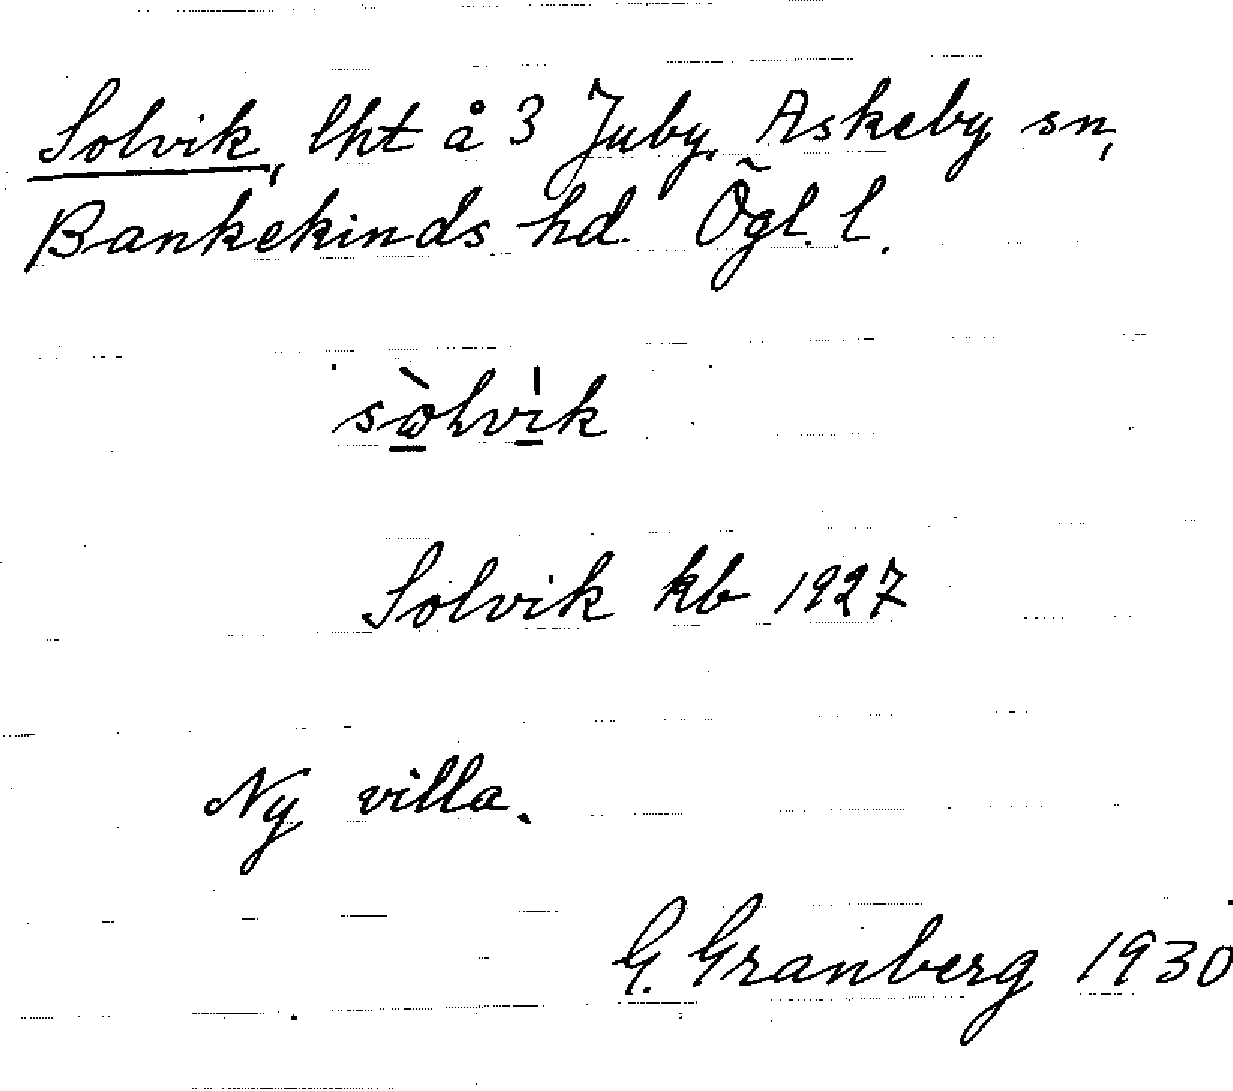 Solvik, lht å 3 Juby, Askeby sn,
Bankekinds hd Ögl. l.
sòlvìk
Solvik kb 1927
Ny villa.
G. Granberg 1930